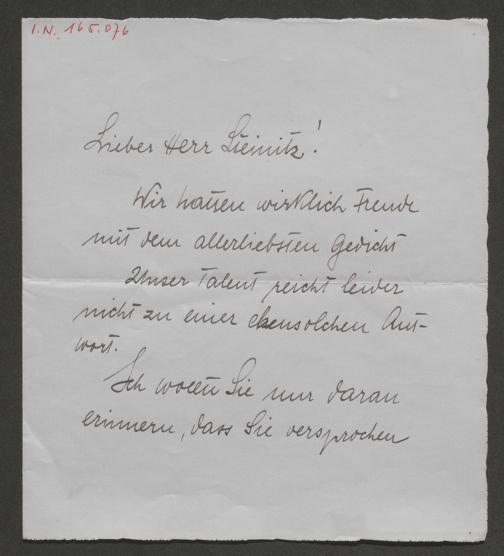 I.N. 165.076
Lieber Herr Steinitz!
Wir hatten wirklich Freude
mit dem allerliebsten Gedicht
Unser Talent reicht leider
nicht zu einer ebensolchen Ant-
wort.
Ich wollte Sie nur daran
erinnern, dass Sie versprochen